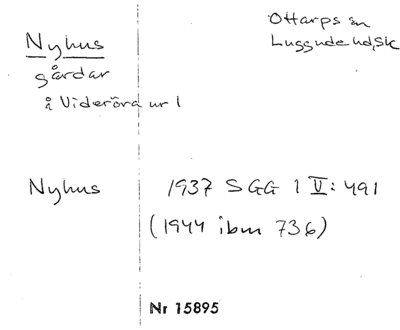 Nyhus
Ottarps sn
Luggude hd, Sk
gårdar
å Videröra nr 1
Nyhus 1937 SGG 1 V: 491
(1944 ibm 736)
Nr 15895